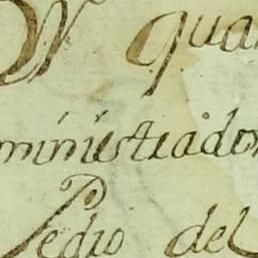 qua
ministrador
Pedro del